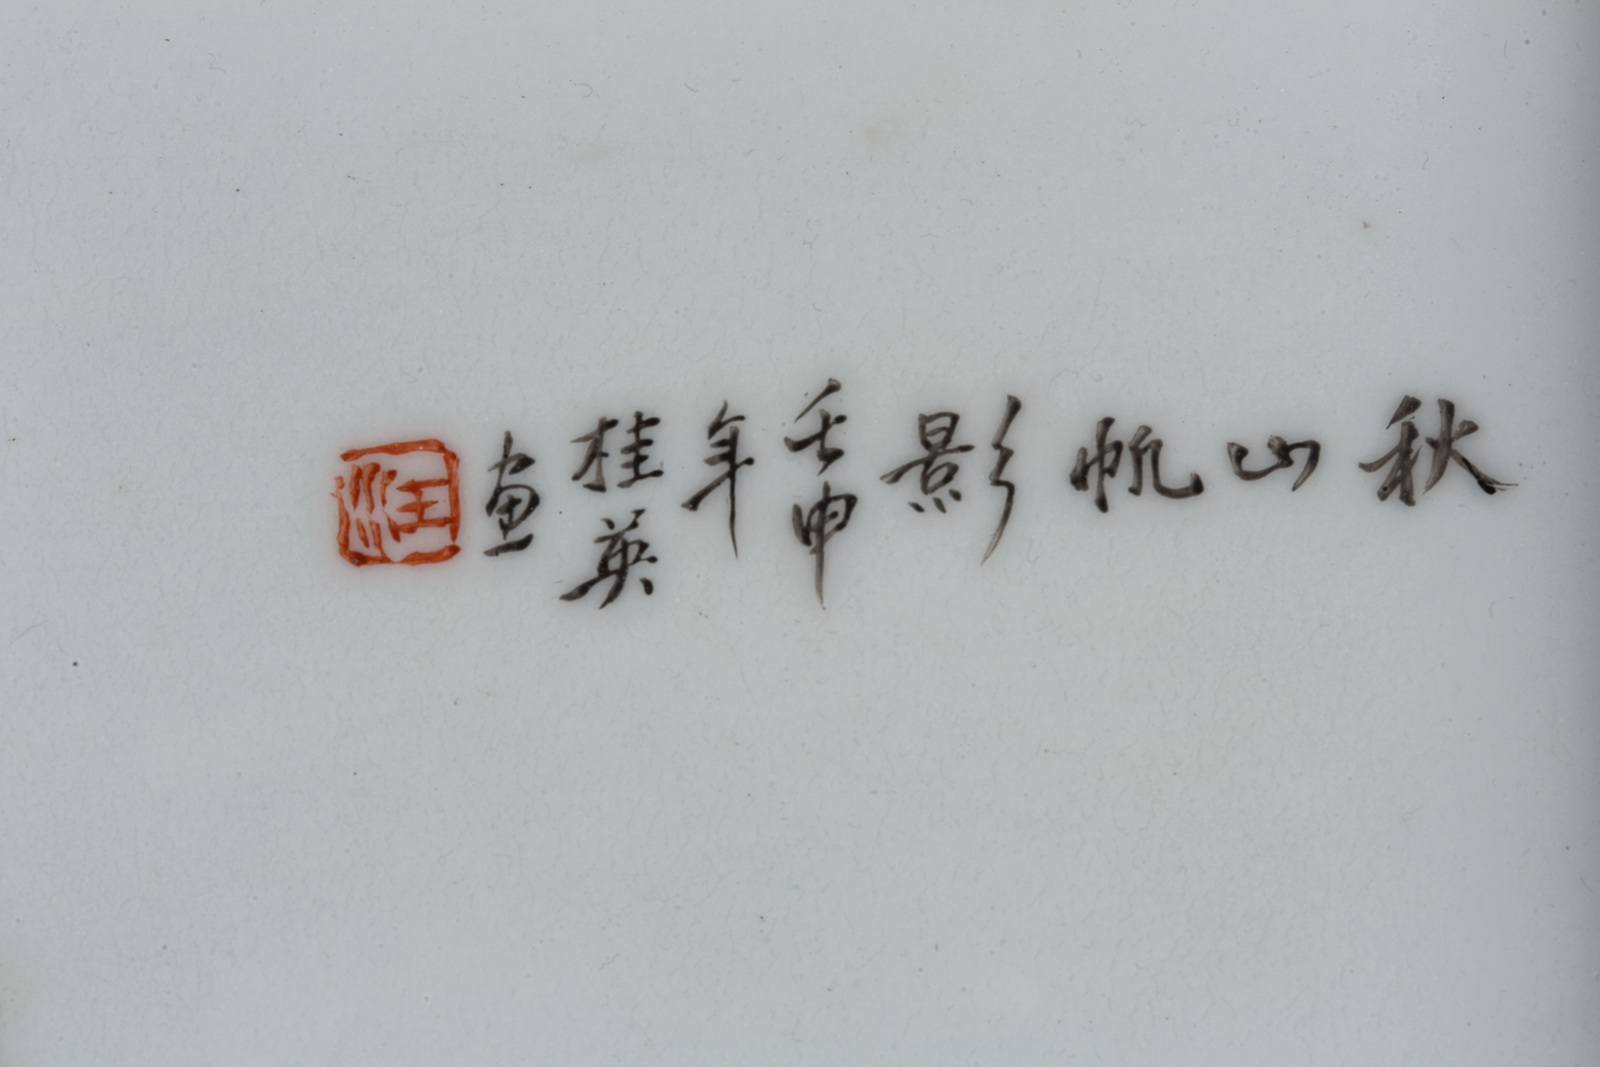 秋山帆影壬申年桂英画
汪